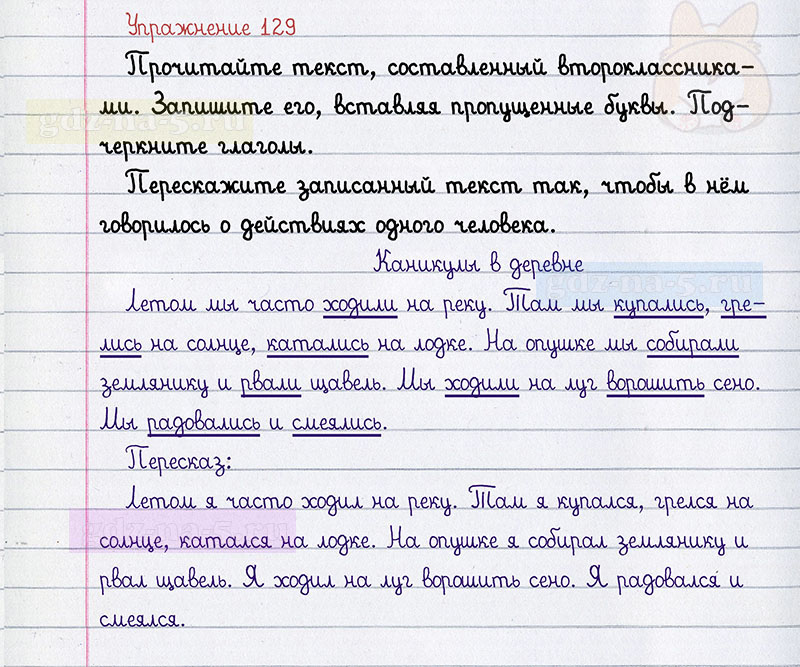 Упражнение 129
Прочитайте текст, составленный второклассника-
ми. Запишите его, вставляя пропущенные буквы. Под-
черкните глаголы.
Перескажите записанный текст так, чтобы в нём
говорилось о действиях одного человека.
Каникулы в деревне
Летом мы часто ходили на реку. Там мы купались, гре-
лись на солнце, катались на лодке. На опушке мы собирали
землянику и рвали щавель. Мы ходили на луг ворошить сено.
Мы радовались и смеялись.
Пересказ:
Летом я часто ходил на реку. Там я купался, грелся на
солнце, катался на лодке. На опушке я собирал землянику и
рвал щавель. Я ходил на луг ворошить сено. Я радовался и
смеялся.
gdz-na-5.ru
gdz-na-5.ru
gdz-na-5.ru